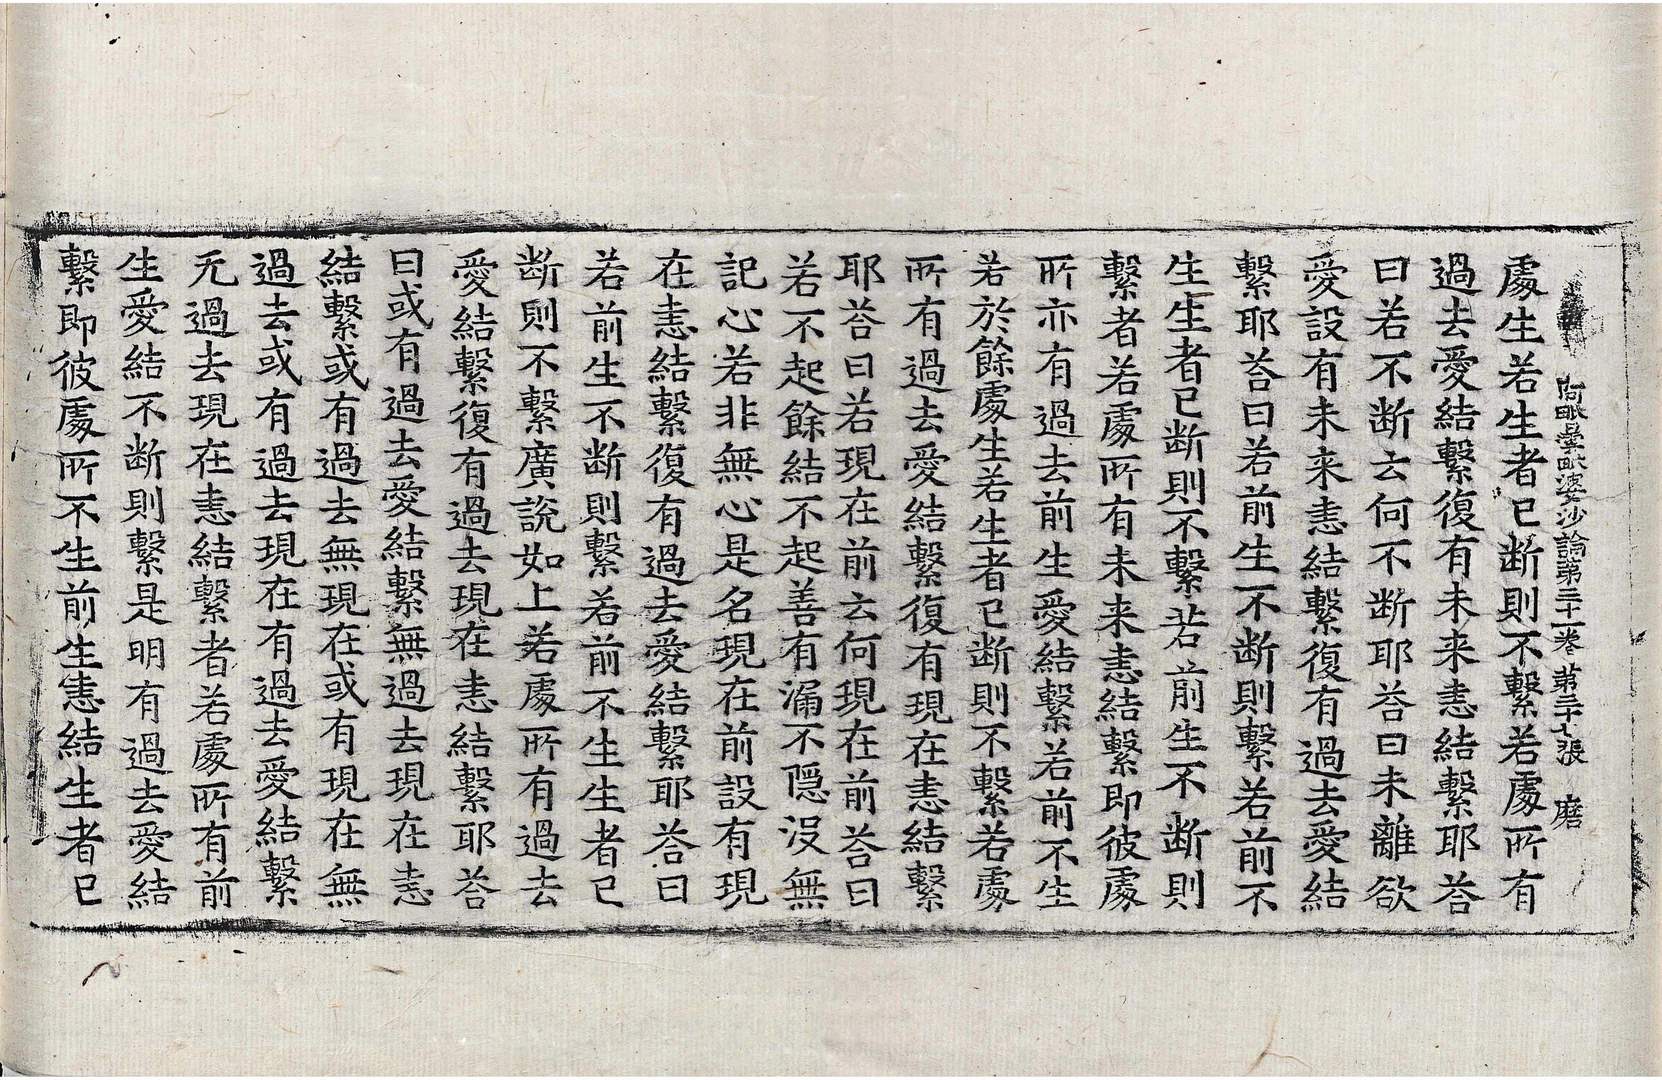 阿毗曇毗婆沙論第三十一卷 第三十七張 磨
處生若生者已断則不繫若處所有
過去愛結繫復有未来恚結繫耶荅
曰若不断云何不断耶荅曰未離欲
愛設有未来恚結繫復有過去愛結
繫耶荅曰若前生不断則繫若前不
生生者已断則不繫若前生不断則
繫者若處所有未来恚結繫即彼處
所亦有過去前生愛結繫若前不生
若於餘處生若生者已断則不繫若處
所有過去愛結繫復有現在恚結繫
耶荅曰若現在前云何現在前荅曰
若不起餘結不起善有漏不隠没無
記心若非無心是名現在前設有現
在恚結繫復有過去愛結繫耶荅曰
若前生不断則繫若前不生生者已
断則不繫廣說如上若處所有過去
愛結繫復有過去現在恚結繫耶荅
曰或有過去愛結繫無過去現在恚
結繫或有過去無現在或有現在無
過去或有過去現在有過去愛結繫
无過去現在恚結繫者若處所有前
生愛結不断則繫是明有過去愛結
繫即彼處所不生前生恚結生者已